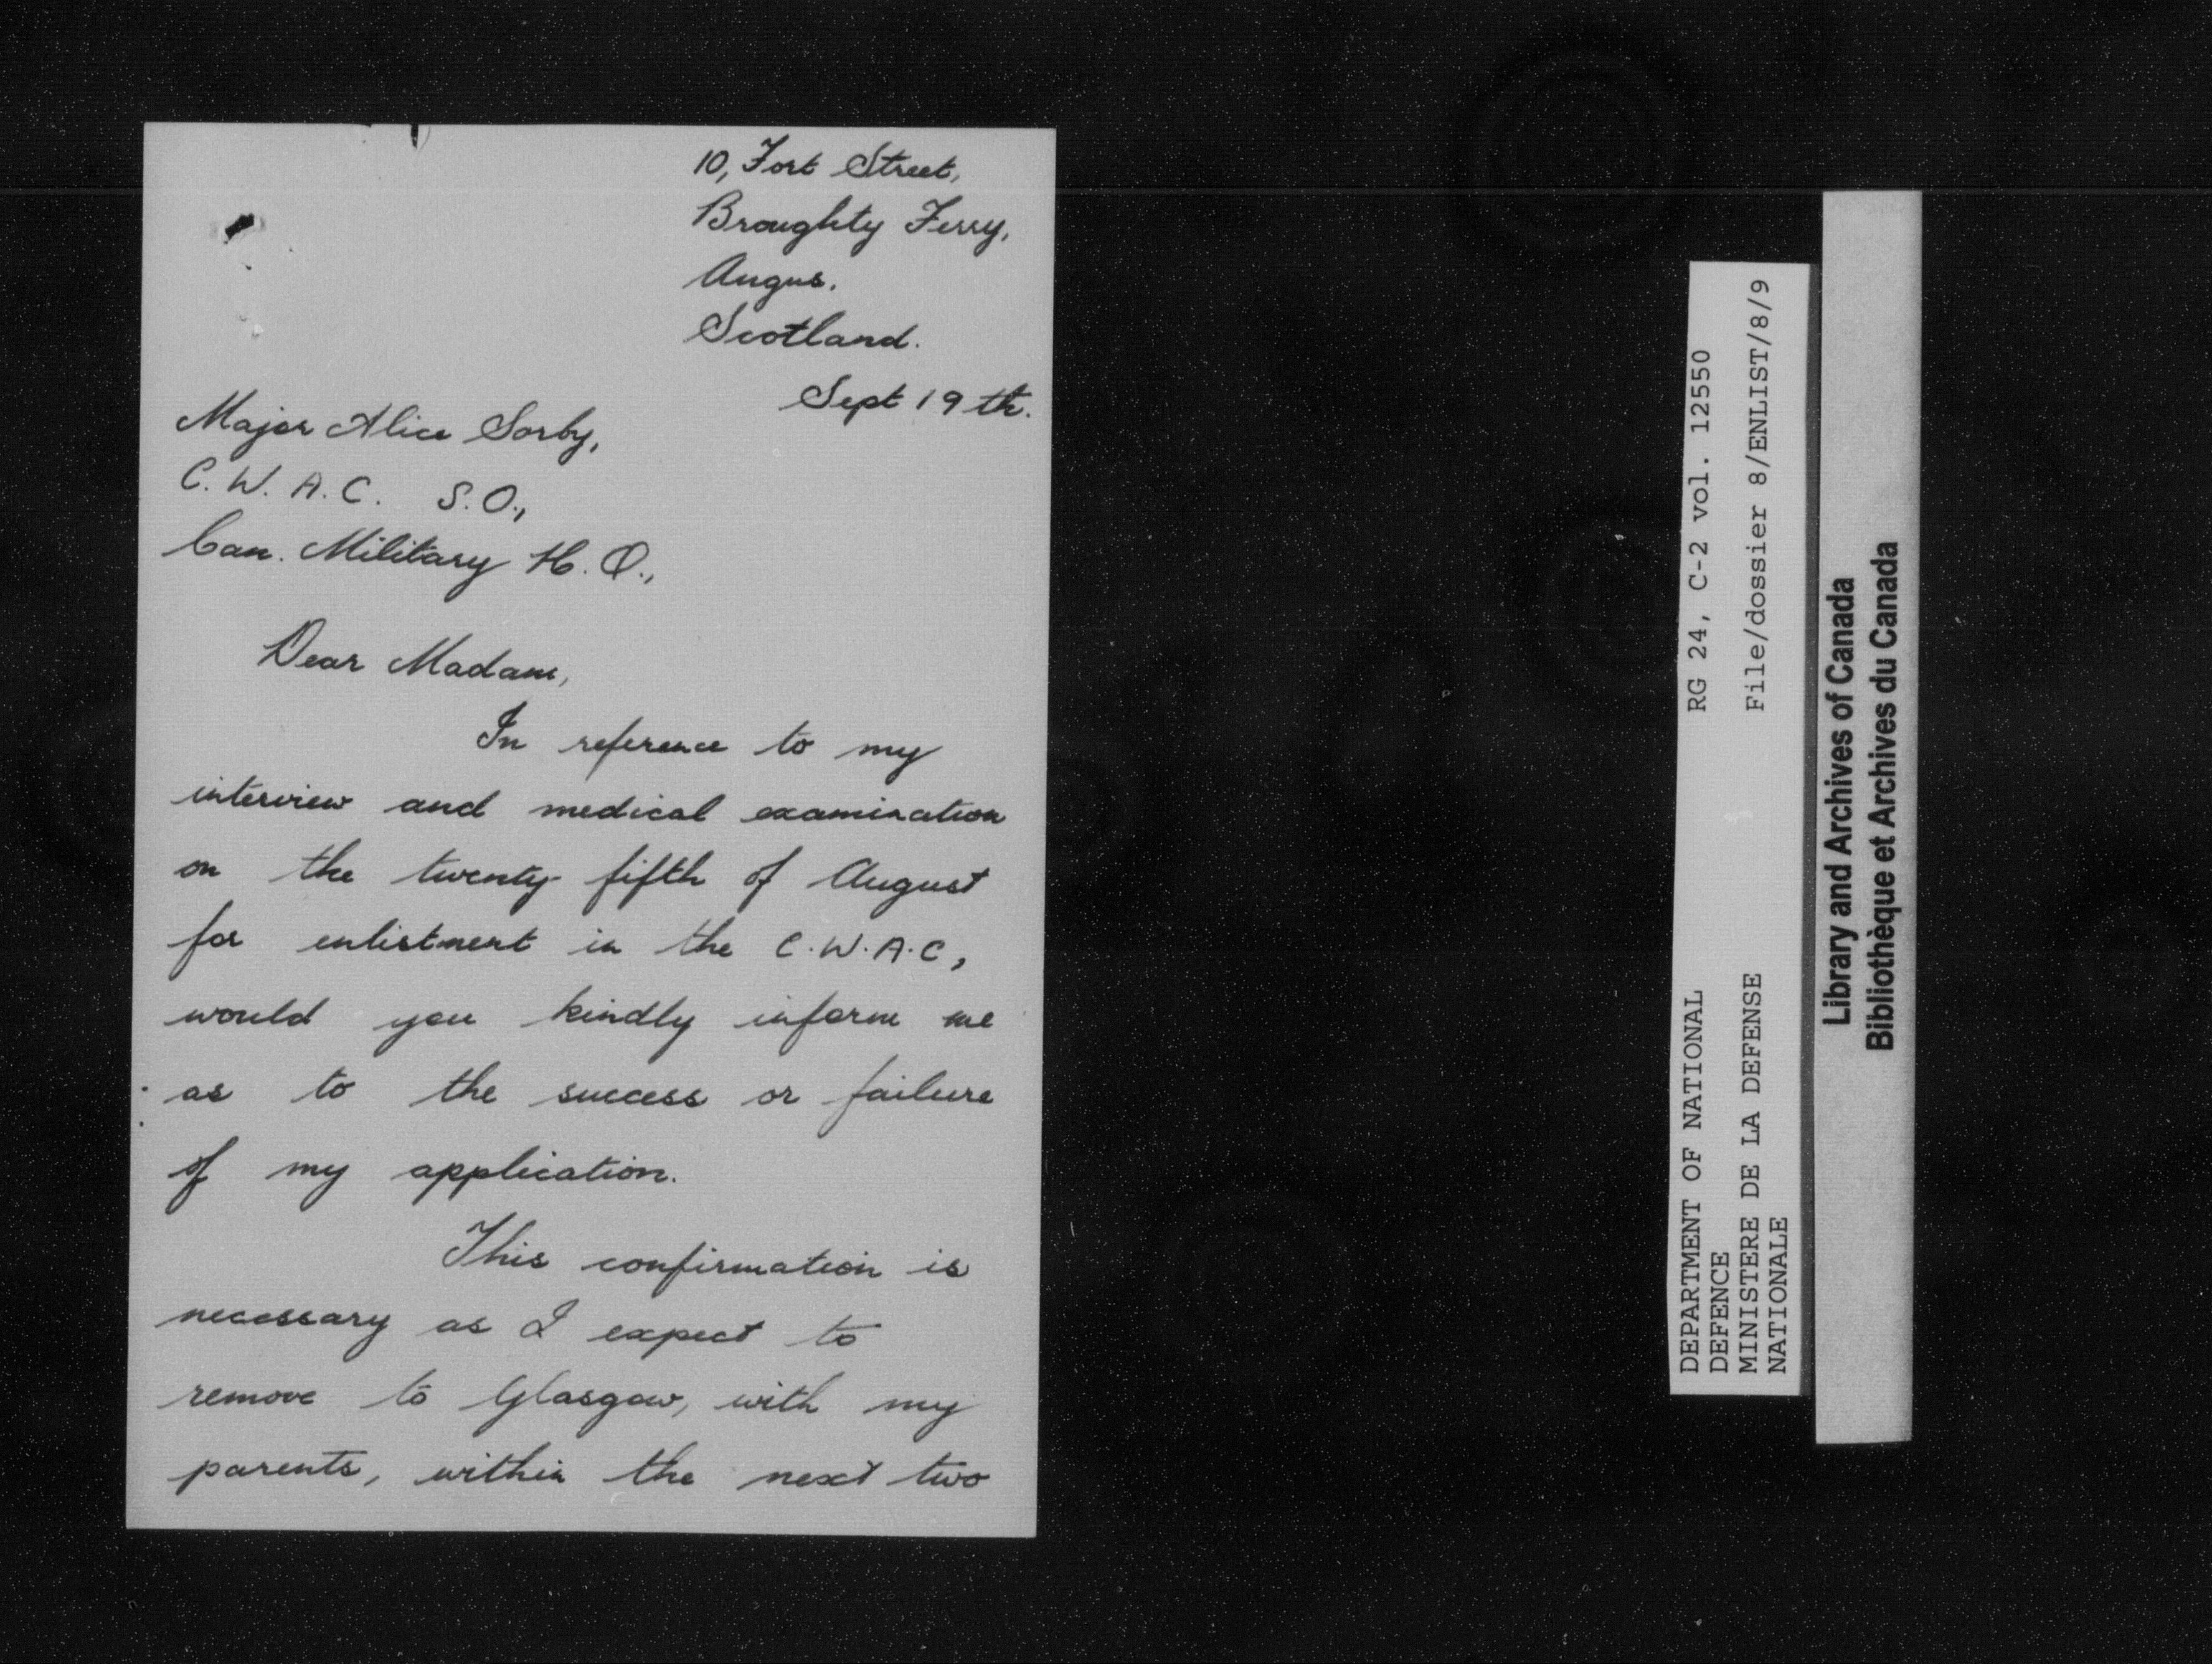 10, Fort Street,
Broughty Ferry,
Angus.
Scotland.
Sept 19th.
Major Alice Sorby,
C.W.A.C. S.O.,
Can. Military H.Q.,
Dear Madam,
In reference to my
interview and medical examination
on the twenty-fifth of August
for enlistment in the C.W.A.C,
would you kindly inform me
as to the success or failure
of my application.
This confirmation is
necessary as I expect to
remove to Glasgow, with my
parents, within the next two
DEPARTMENT OF NATIONAL
DEFENCE
MINISTERE DE LA DEFENSE
NATIONALE
RG 24, C-2 vol. 12550
File/dossier 8/ENLIST/8/9
Library and Archives of Canada
Bibliothèque et Archives du Canada